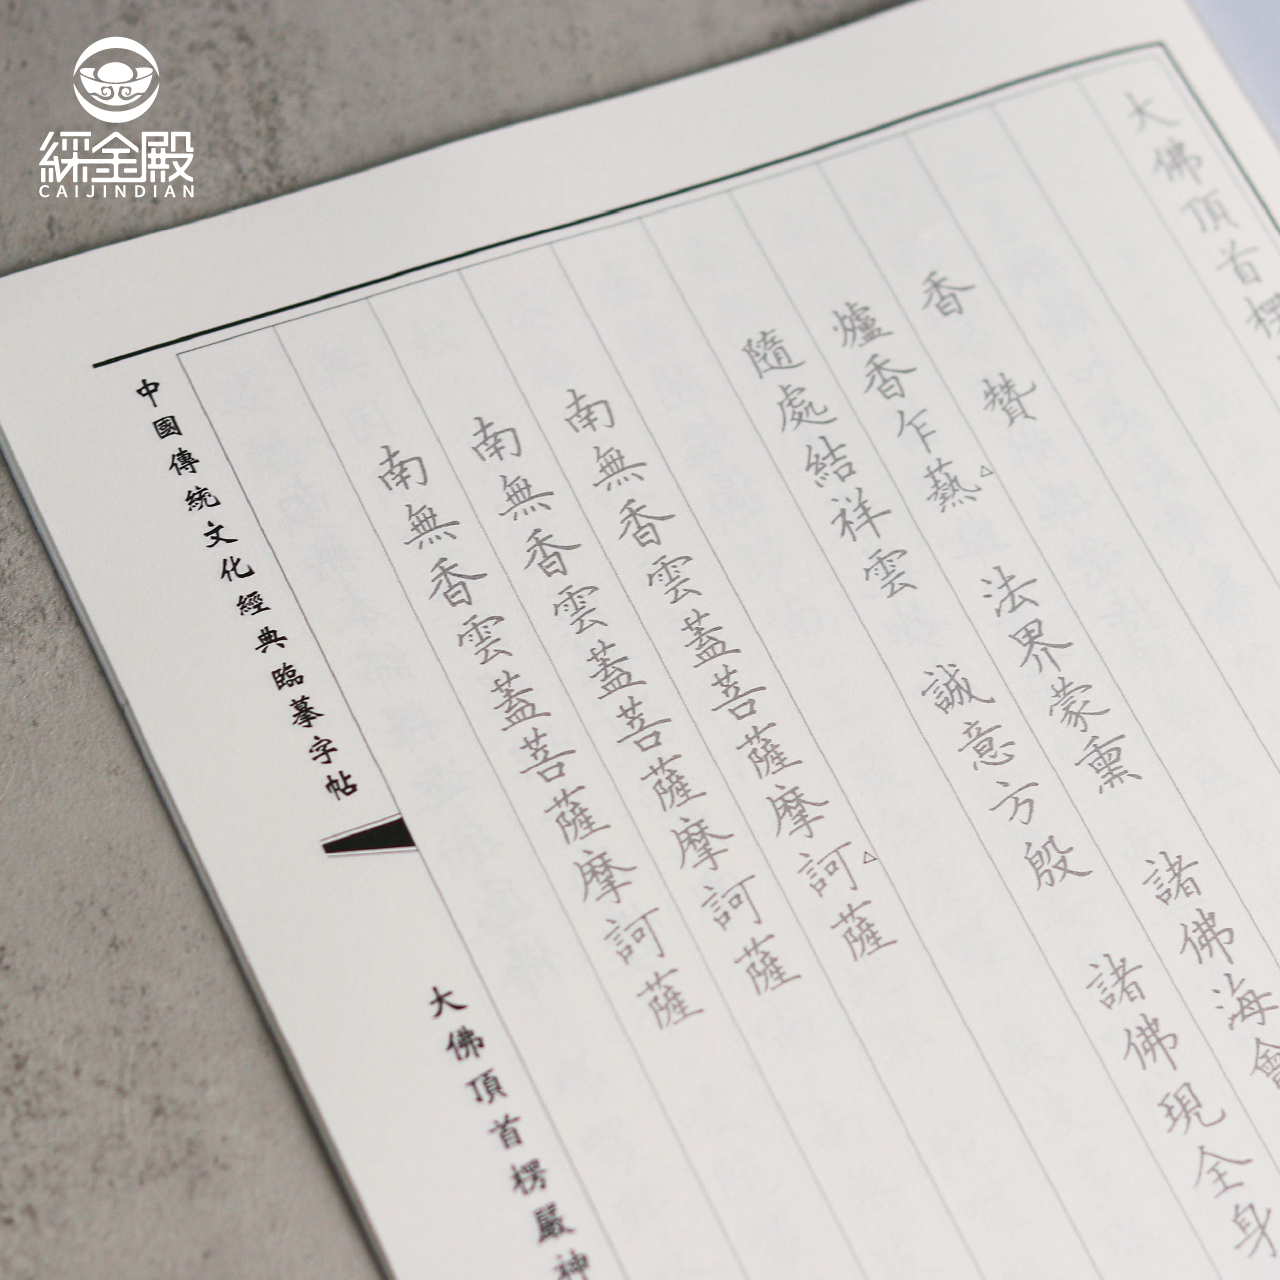 綵金殿
CAIJINDIAN
大佛頂首楞
香 贊
爐香乍爇 法界蒙熏 諸佛海會
隨處結祥雲 誠意方殷 諸佛現全身
南無香雲蓋菩薩摩訶薩
南無香雲蓋菩薩摩訶薩
南無香雲蓋菩薩摩訶薩
中國傳統文化經典臨摹字帖
大佛頂首楞嚴神